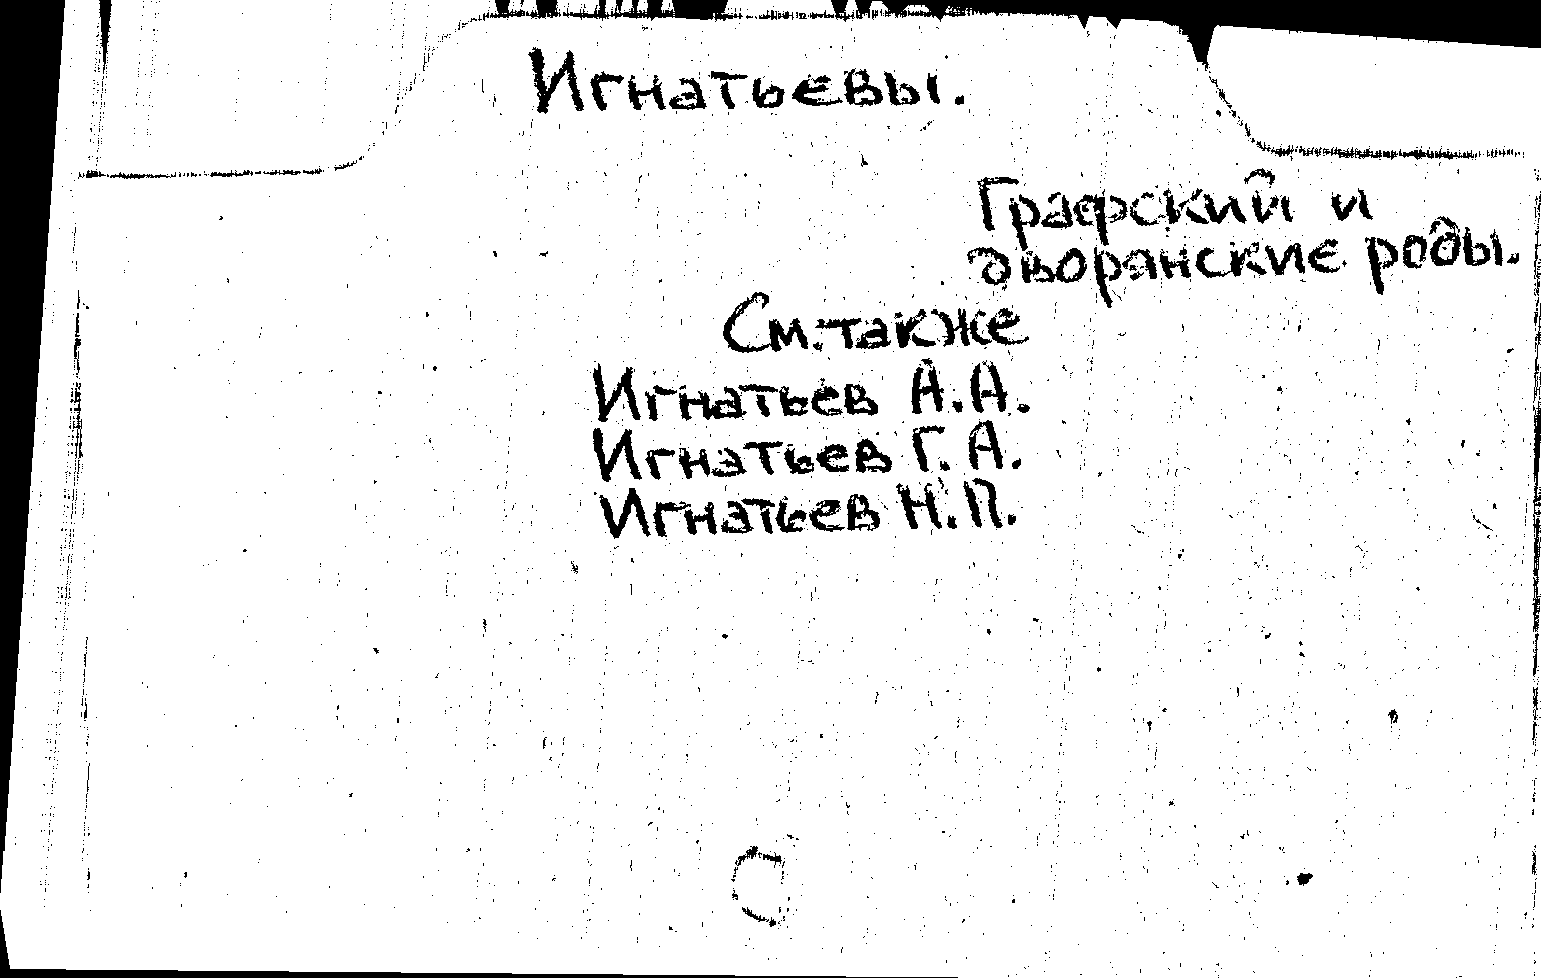 Игнатьевы.
Графский и
дворянские роды.
См. также
Игнатьев А.А.
Игнатьев Г.А.
Игнатьев Н.П.